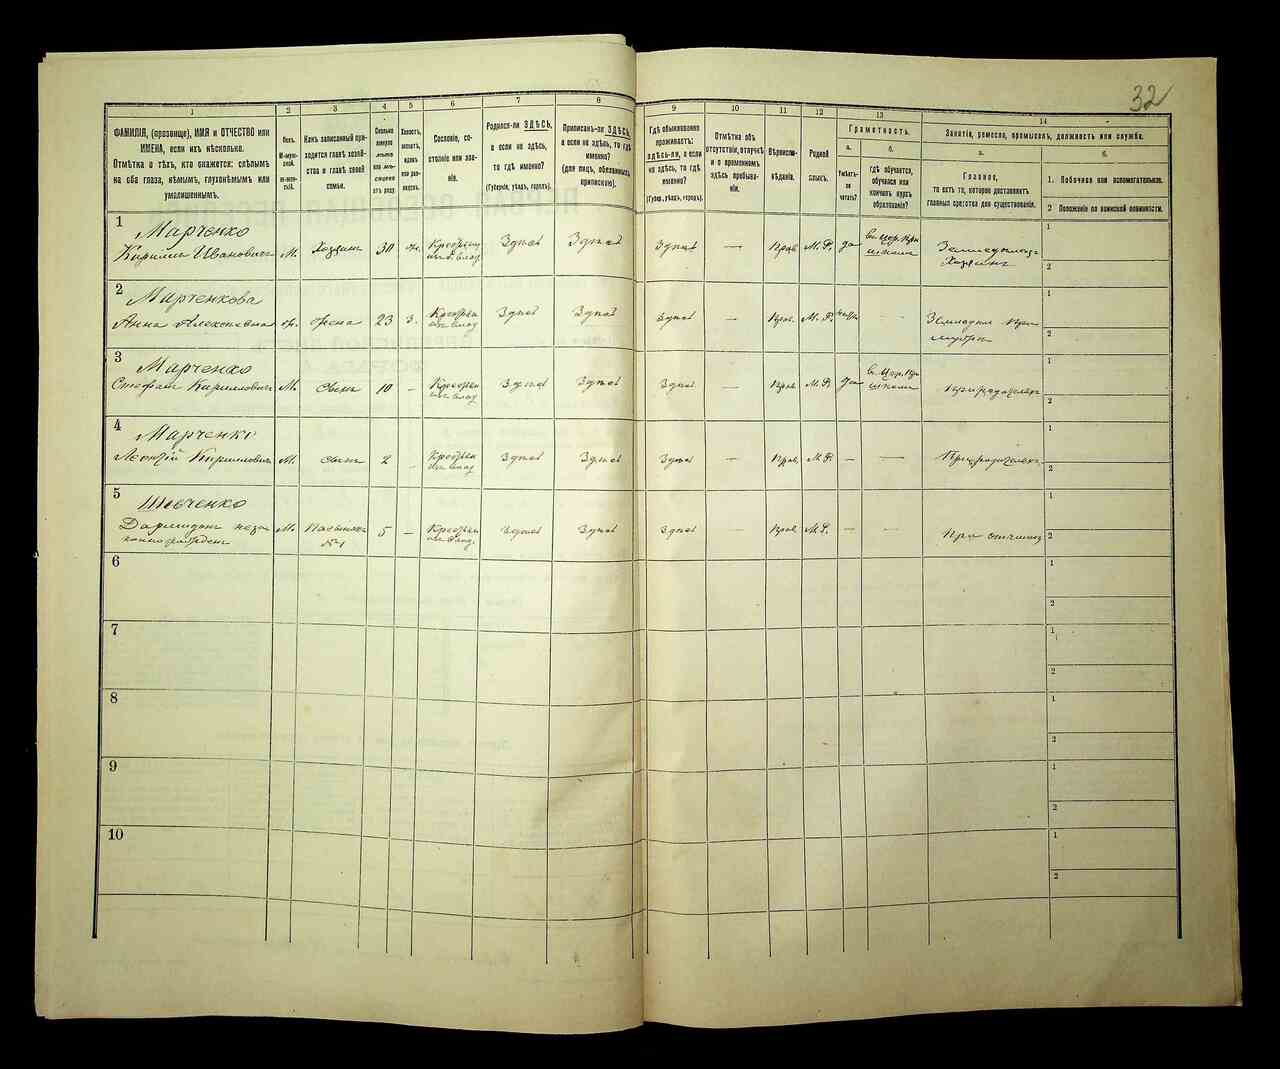 32
1 2 3 4 5 6 7 8 9 10 11 12 13 14
ФАМИЛІЯ, (прозвище), ИМЯ и ОТЧЕСТВО или
ИМЕНА, если ихъ нѣсколько.
Отмѣтка о тѣхъ, кто окажется: слѣпымъ
на оба глаза, нѣмымъ, глухонѣмымъ или
умалишеннымъ.
Полъ.
М-муж-
ской.
Ж-жен-
скій.
Какъ записанный при-
ходится главѣ хозяй-
ства и главѣ своей
семьи.
Сколько
минуло
лѣтъ
или мѣ-
сяцевъ
отъ роду.
Холостъ,
женатъ,
вдовъ
или раз-
веденъ.
Сословіе, со-
стояніе или зва-
ніе.
Родился-ли ЗДѢСЬ,
а если не здѣсь,
то гдѣ именно?
(Губернія, уѣздъ, городъ).
Приписанъ-ли ЗДѢСЬ,
а если не здѣсь, то гдѣ
именно?
(для лицъ, обязанныхъ
припискою).
Гдѣ обыкновенно
проживаетъ:
здѣсь-ли, а если
не здѣсь, то гдѣ
именно?
(Губер., уѣздъ, городъ).
Отмѣтка объ
отсутствіи, отлучкѣ
и о временномъ
здѣсь пребыва-
ніи.
Вѣроиспо-
вѣданіе.
Родной
языкъ.
Грамотность.
а.
Умѣетъ-
ли
читать?
б.
гдѣ обучается,
обучался или
кончилъ курсъ
образованія?
Занятія, ремесло, промыселъ, должность или служба.
а.
Главное,
то есть то, которое доставляетъ
главныя средства для существованія.
б.
1. Побочное или вспомогательное.
2 Положеніе по воинской повинности.
1 Марченко
Кирилъ Ивановичъ М. Хозяинъ 30 Здѣсь Здѣсь Здѣсь — Прав М.Р. да школѣ
Хозяинъ
1
2
2 Марченкова
Анна Алексѣевна ж. жена 23 З. Здѣсь Здѣсь Здѣсь — Прав. М.Р.
1
2
3 Марченко
Стефанъ Кирилловичъ М. сынъ 10 — Здѣсь Здѣсь Здѣсь — Прав М.Р. Да школѣ
1
2
4 Марченко
Леонтій Кирилловичъ М. сынъ 2 Здѣсь Здѣсь Здѣсь — Прав. М.Р. — —
1
2
5 Шевченко
М. 5 — Здѣсь Здѣсь Здѣсь — Прав М.Р. — — При отчимѣ
1
2
6
1
2
7
1
2
8
1
2
9
1
2
10
1
2